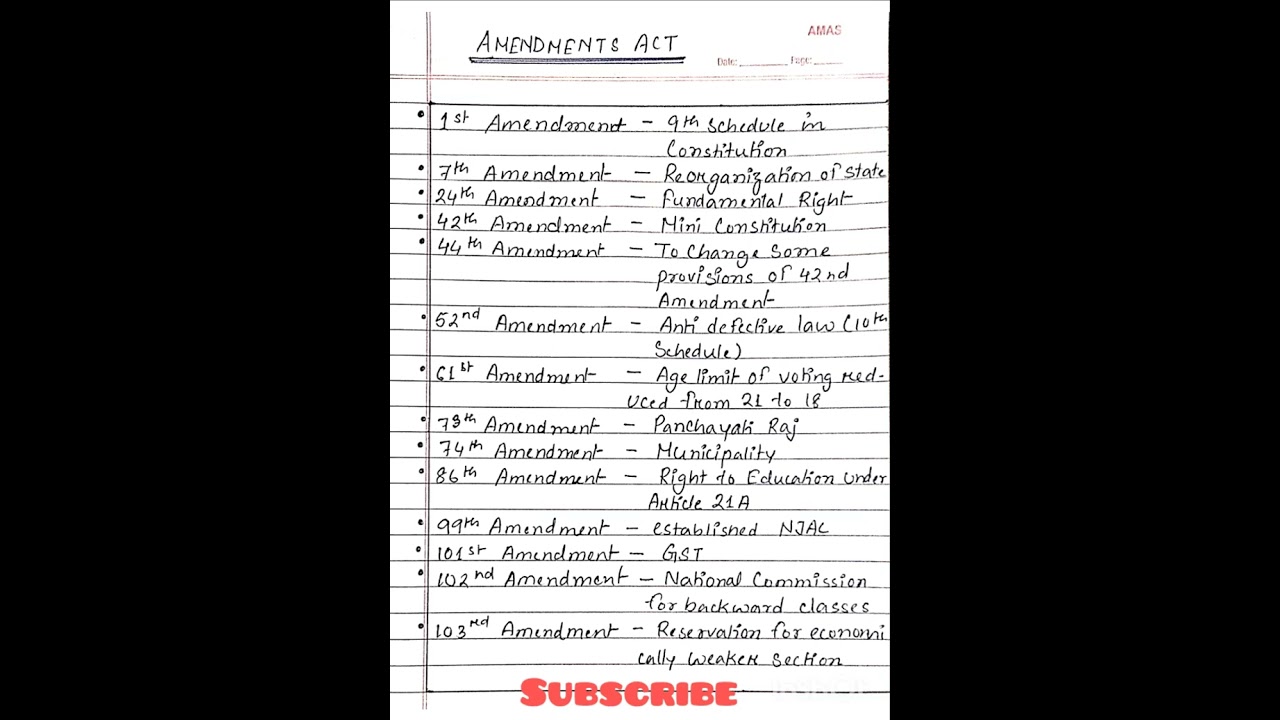 AMAS
AMENDMENTS ACT
Date: ________ Page: ______
• 1st Amendment - 9th schedule in
Constitution
• 7th Amendment - Reorganization of state
• 24th Amendment - Fundamental Right
• 42th Amendment - Mini Constitution
• 44th Amendment - To Change Some
provisions of 42nd
Amendment
• 52nd Amendment - Anti defective law (10th
Schedule)
• 61st Amendment - Age limit of voting red-
uced from 21 to 18
• 73th Amendment - Panchayati Raj
• 74th Amendment - Municipality
• 86th Amendment - Right to Education under
Article 21A
• 99th Amendment - established NJAC
• 101st Amendment - GST
• 102nd Amendment - National Commission
for backward classes
• 103rd Amendment - Reservation for economi
cally weaker section
SUBSCRIBE